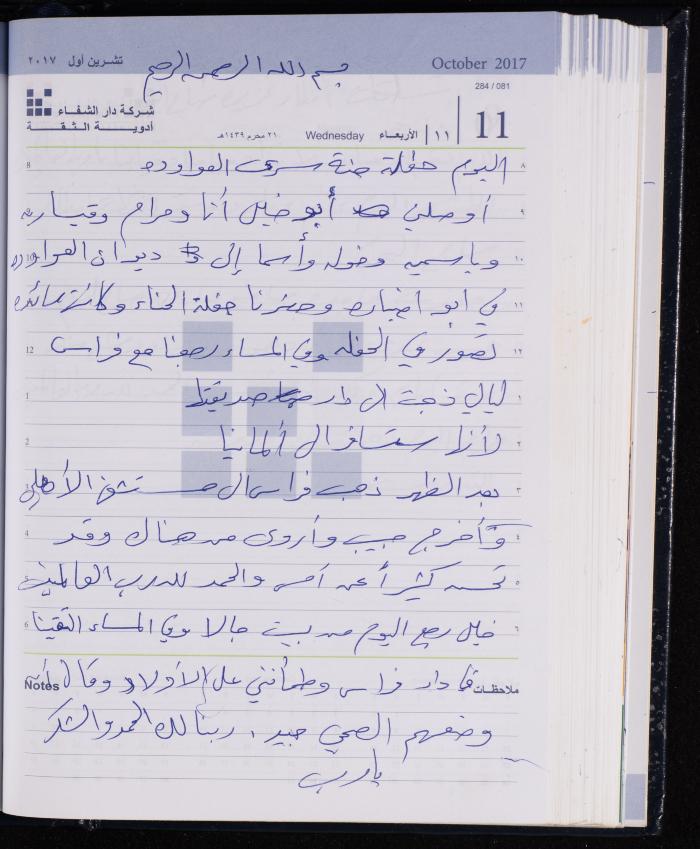 تشرين أول ٢٠١٧
October 2017
بسم الله الرحمن الرحيم
284 / 081
شركة دار الشفاء
أدويـــة الـثـقـة
٢١ محرم ١٤٣٩هـ
Wednesday
الأربعـاء
١١
11
اليوم حفلة حنة سرى العواوده
أوصلني أبو خليل أنا ومرام وقيسارية
وباسمية وخوله وأسما إلى ديوان العواوده
في ابو اخباره وحضرنا حفلة الحناء وكانت عائده
تصور في الحفله وفي المساء رجعنا مع فراس
ليالي ذهبت الى دار صديقتها
لأنها ستسافر الى ألمانيا
بعد الظهر ذهب فراس الى مستشفى الأهلي
وأخرج حبيب وأروى من هناك وقد
تحسنه كثيراً عن أمس والحمد لله رب العالمين
خليل رجع اليوم من بيت جالا وفي المساء التقينا
ملاحظات
Notes
في دار فراس وطمأنني على الأولاد وقال أن
وضعهم الصحي جيد، ربنا لك الحمد والشكر
يارب